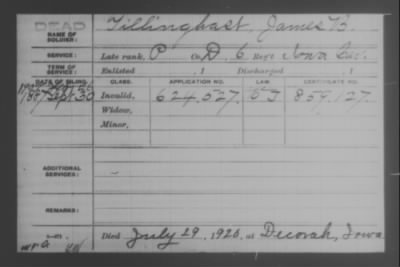 DEAD
NAME OF SOLDIER: Tillinghast, James B.
SERVICE: Late rank, P Co. D, 6 Reg't Iowa Cav.
TERM OF SERVICE: Enlisted , 1 Discharged , 1
DATE OF FILING. CLASS. APPLICATION NO. CERTIFICATE NO.
1887 Sept 30 Invalid, 624.527. 859.127.
Widow,
Minor,
ADDITIONAL SERVICES:
REMARKS:
Died July 29, 1920, at Decorah, Iowa